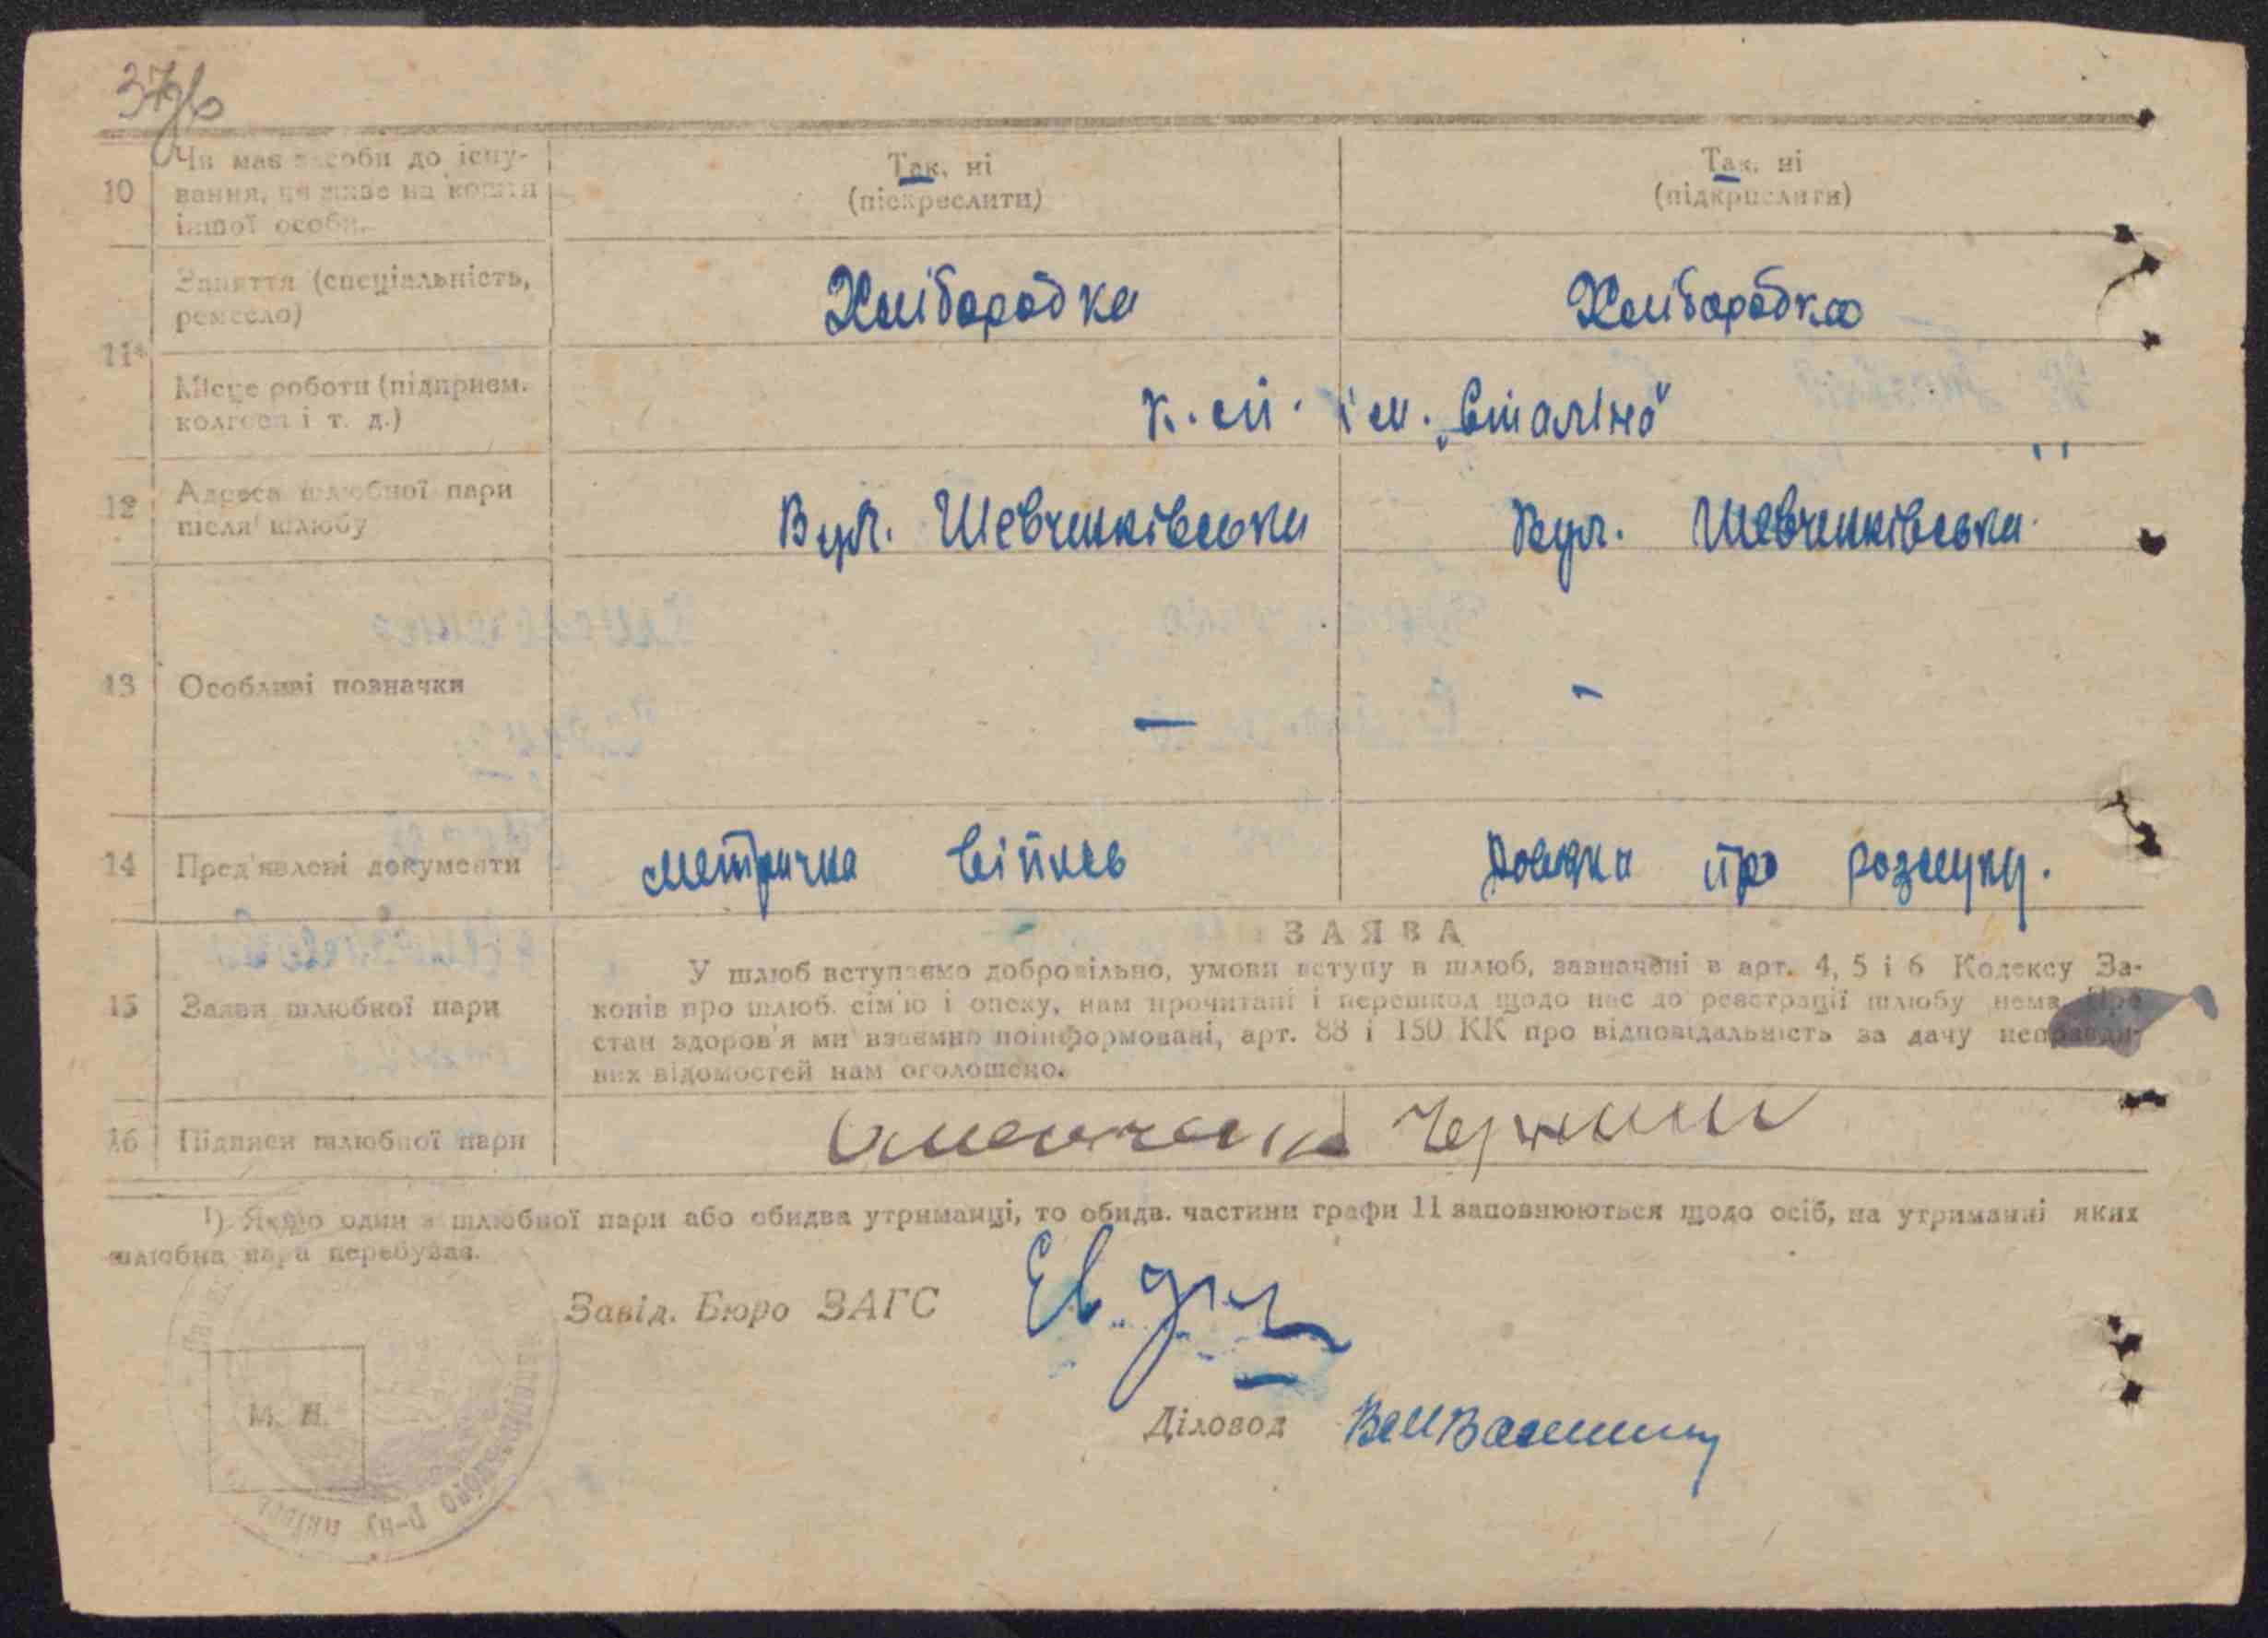 37
10 Чи має засоби до існу-
вання, чи живе на кошти
іншої особи.
Так, ні
(піскреслити)
Так, ні
(підкрислити)
11
Заняття (спеціальність,
ремесло)
Хлібаробка
Хлібаробка
Місце роботи (підприєм.
колгосп і т. д.)
к. сп. ім. „Сталіна"
12 Адреса шлюбної пари
після шлюбу
Вул. Шевченківська
Вул. Шевченківська
13 Особливі позначки
—
—
14 Пред'явлені документи
метрична війпсь
Довідка про розлуку.
15 Заяви шлюбної пари
ЗАЯВА
У шлюб вступаємо добровільно, умови вступу в шлюб, зазначені в арт. 4, 5 і 6 Кодексу За-
конів про шлюб, сім'ю і опеку, нам прочитані і перешкод щодо нас до реєстрації шлюбу нема. Про
стан здоров'я ми взаємно поінформовані, арт. 88 і 150 КК про відповідальність за дачу неправди-
вих відомостей нам оголошено.
16 Підписи шлюбної пари
¹) Якщо один з шлюбної пари або обидва утриманці, то обидв. частини графи 11 заповнюються щодо осіб, на утриманні яких
шлюбна пара перебуває.
Завід. Бюро ЗАГС
М. П.
Діловод